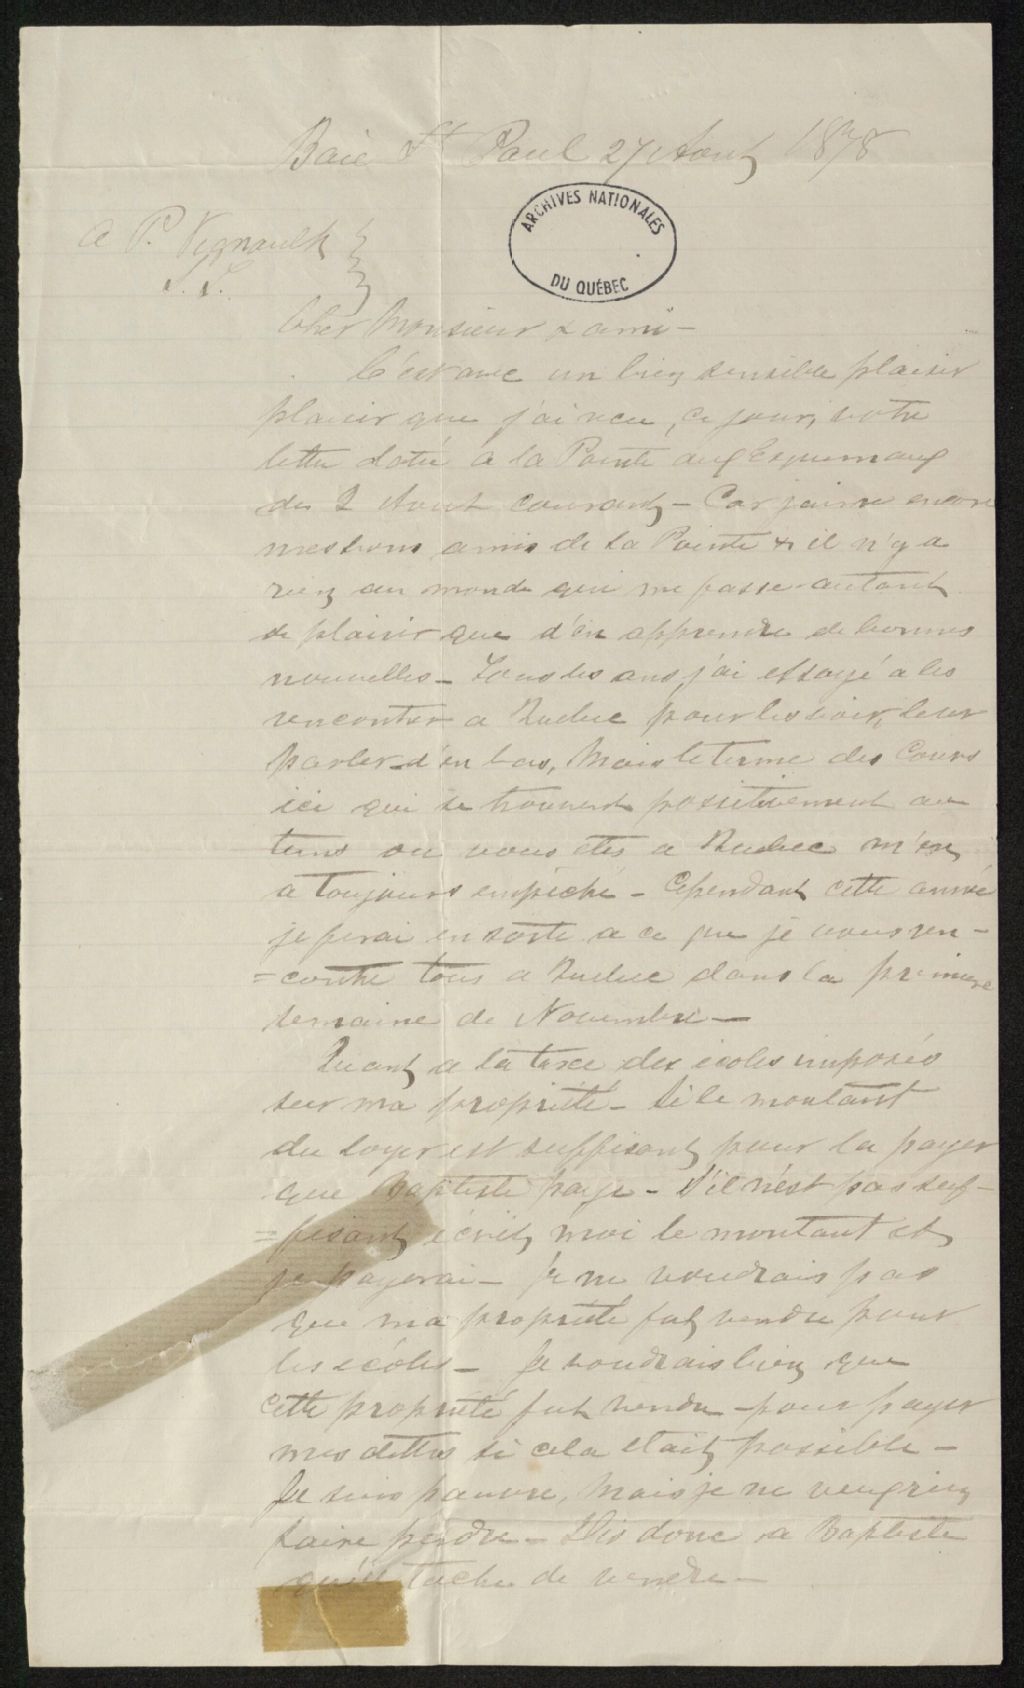 Baie St Paul 27 Aout 1878
ARCHIVES NATIONALES
DU QUÉBEC
a P. Vignault
Cher Monsieur & ami -
C'est avec un bien sensible plaisir
plaisir que j'ai recu, ce jour, votre
lettre datée a la Pointe aux Esquimaux
du 2 Aout courant - Car j'aime encore
mes bons amis de la Pointe & il n'y a
rien au monde qui me fasse autant
de plaisir que d'en apprendre de bonnes
nouvelles - Tous les ans j'ai essayé a les
rencontrer a Quebec pour les voir, leur
parler d'en bas, Mais le terme des Cours
ici qui se trouvent positivement au
tems ou vous etes a Quebec m'en
a toujours empêché - Cependant cette année
je ferai en sorte a ce que je vous ren-
=contre tous a Quebec dans la premiere
semaine de Novembre -
Quant a la taxe des écoles imposée
sur ma propriété - Si le montant
du loyer est suffisant pour la payer
que Baptiste paye - S'il n'est pas suf-
=fisant, écrit moi le montant et
je payerai - Je ne voudrais pas
que ma propriété fut vendue pour
les écoles - Je voudrais bien que
cette propriété fut vendu - pour payer
mes dettes si cela etait possible -
Je suis pauvre, Mais je ne veux rien
faire perdre - Dis donc a Baptiste
qu'il tache de vendre -